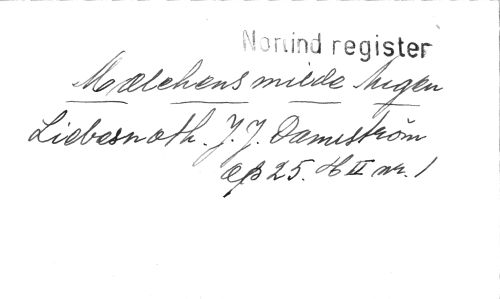 Nonind register
Mädchens milde Augen
Liebesnoth. J. J. Dannström
op 25. H II nr. 1